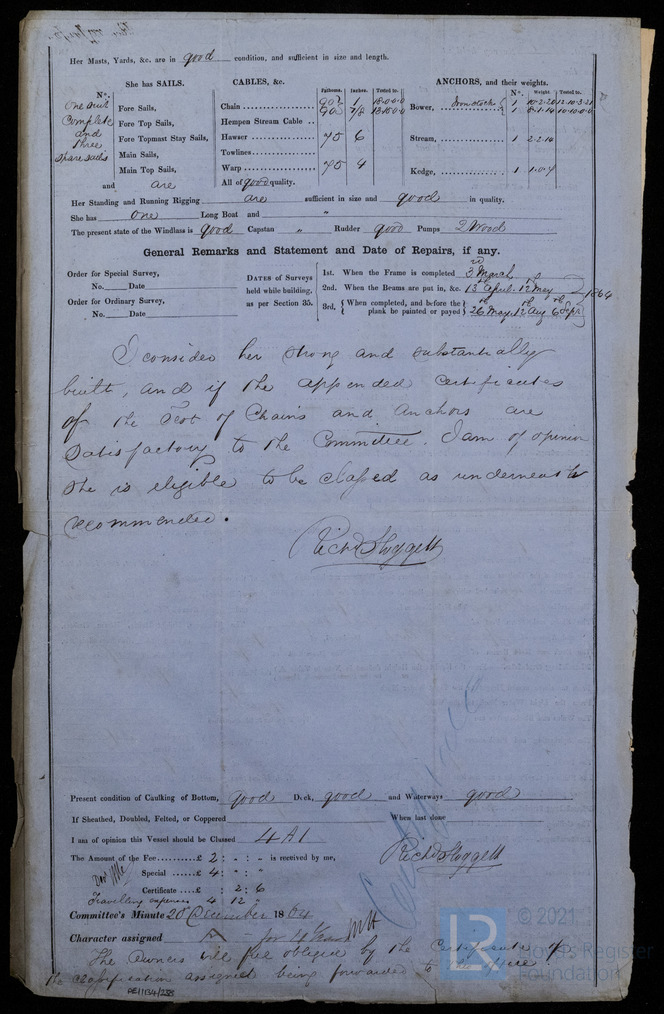 Her Masts, Yards, &c. are in good condition, and sufficient in size and length.
She has SAILS.
CABLES, &c.
ANCHORS, and their weights.
No.
One suit Complete and three spare sails
Fore Sails,
Fore Top Sails,
Fore Topmast Stay Sails,
Main Sails,
Main Top Sails,
and are
Fathoms. Inches. Tested to.
Chain 90 1 18·0·0·0
90 7/8
Hempen Stream Cable
Hawser 75 6
Towlines
Warp 75 4
All of good quality.
No. Weight. Tested to.
Bower, Iron stock 1 10·2·20 12·10·3·21
1
Stream, 1 2·2·14
Kedge, 1 1·0·4
Her Standing and Running Rigging are sufficient in size and good in quality.
She has one Long Boat and "
The present state of the Windlass is good Capstan " Rudder good Pumps 2 Wood
General Remarks and Statement and Date of Repairs, if any.
Order for Special Survey,
No. Date
Order for Ordinary Survey,
No. Date
DATES of Surveys held while building, as per Section 35.
1st. When the Frame is completed 3rd March
2nd. When the Beams are put in, &c. 13 April. 12th May
3rd. { When completed, and before the plank be painted or payed } 26th May. 12th Aug 6th Sept
1864
I consider her strong and substantially
built, and if the appended certificates
of the Test of Chains and Anchors are
satisfactory to the Committee. I am of opinion
she is eligible to be classed as underneath
recommended.
Richd Hoggett
Present condition of Caulking of Bottom, good Deck, good and Waterways good
If Sheathed, Doubled, Felted, or Coppered When last done
I am of opinion this Vessel should be Classed 4 A 1
The Amount of the Fee £ 2 : " : " is received by me,
Richd Hoggett
Special £ 4 : " : "
Certificate £ : 2 : 6
Travelling expenses 4 12
Committee's Minute 20 December 1864
Character assigned A for 4 Years
The Owners will feel obliged by the Certificate of
the classification assigned being forwarded to the office
PE1134/238
© 2021
Lloyd's Register
Foundation
LR